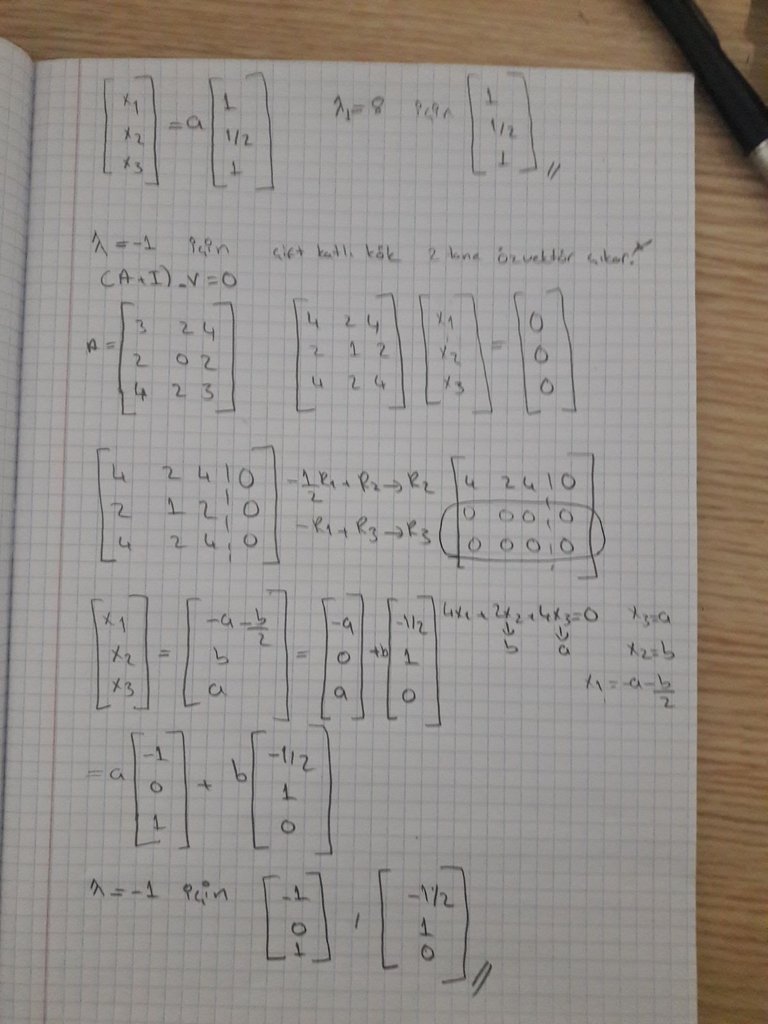 [x₁ x₂ x₃] = a [1 1/2 1] λ₁=8 için [1 1/2 1] //
λ=-1 için çift katlı kök 2 tane özvektör çıkar.
(A+I).v=0
A = [3 2 4; 2 0 2; 4 2 3] [4 2 4; 2 1 2; 4 2 4] [x₁ x₂ x₃] = [0 0 0]
[4 2 4 | 0; 2 1 2 | 0; 4 2 4 | 0] -1/2 R₁+R₂→R₂ -R₁+R₃→R₃ [4 2 4 | 0; 0 0 0 | 0; 0 0 0 | 0]
[x₁ x₂ x₃] = [-a-b/2 b a] = [-a 0 a] + b [-1/2 1 0] 4x₁+2x₂+4x₃=0 x₃=a
b a x₂=b
x₁=-a-b/2
= a [-1 0 1] + b [-1/2 1 0]
λ=-1 için [-1 0 1] , [-1/2 1 0] //